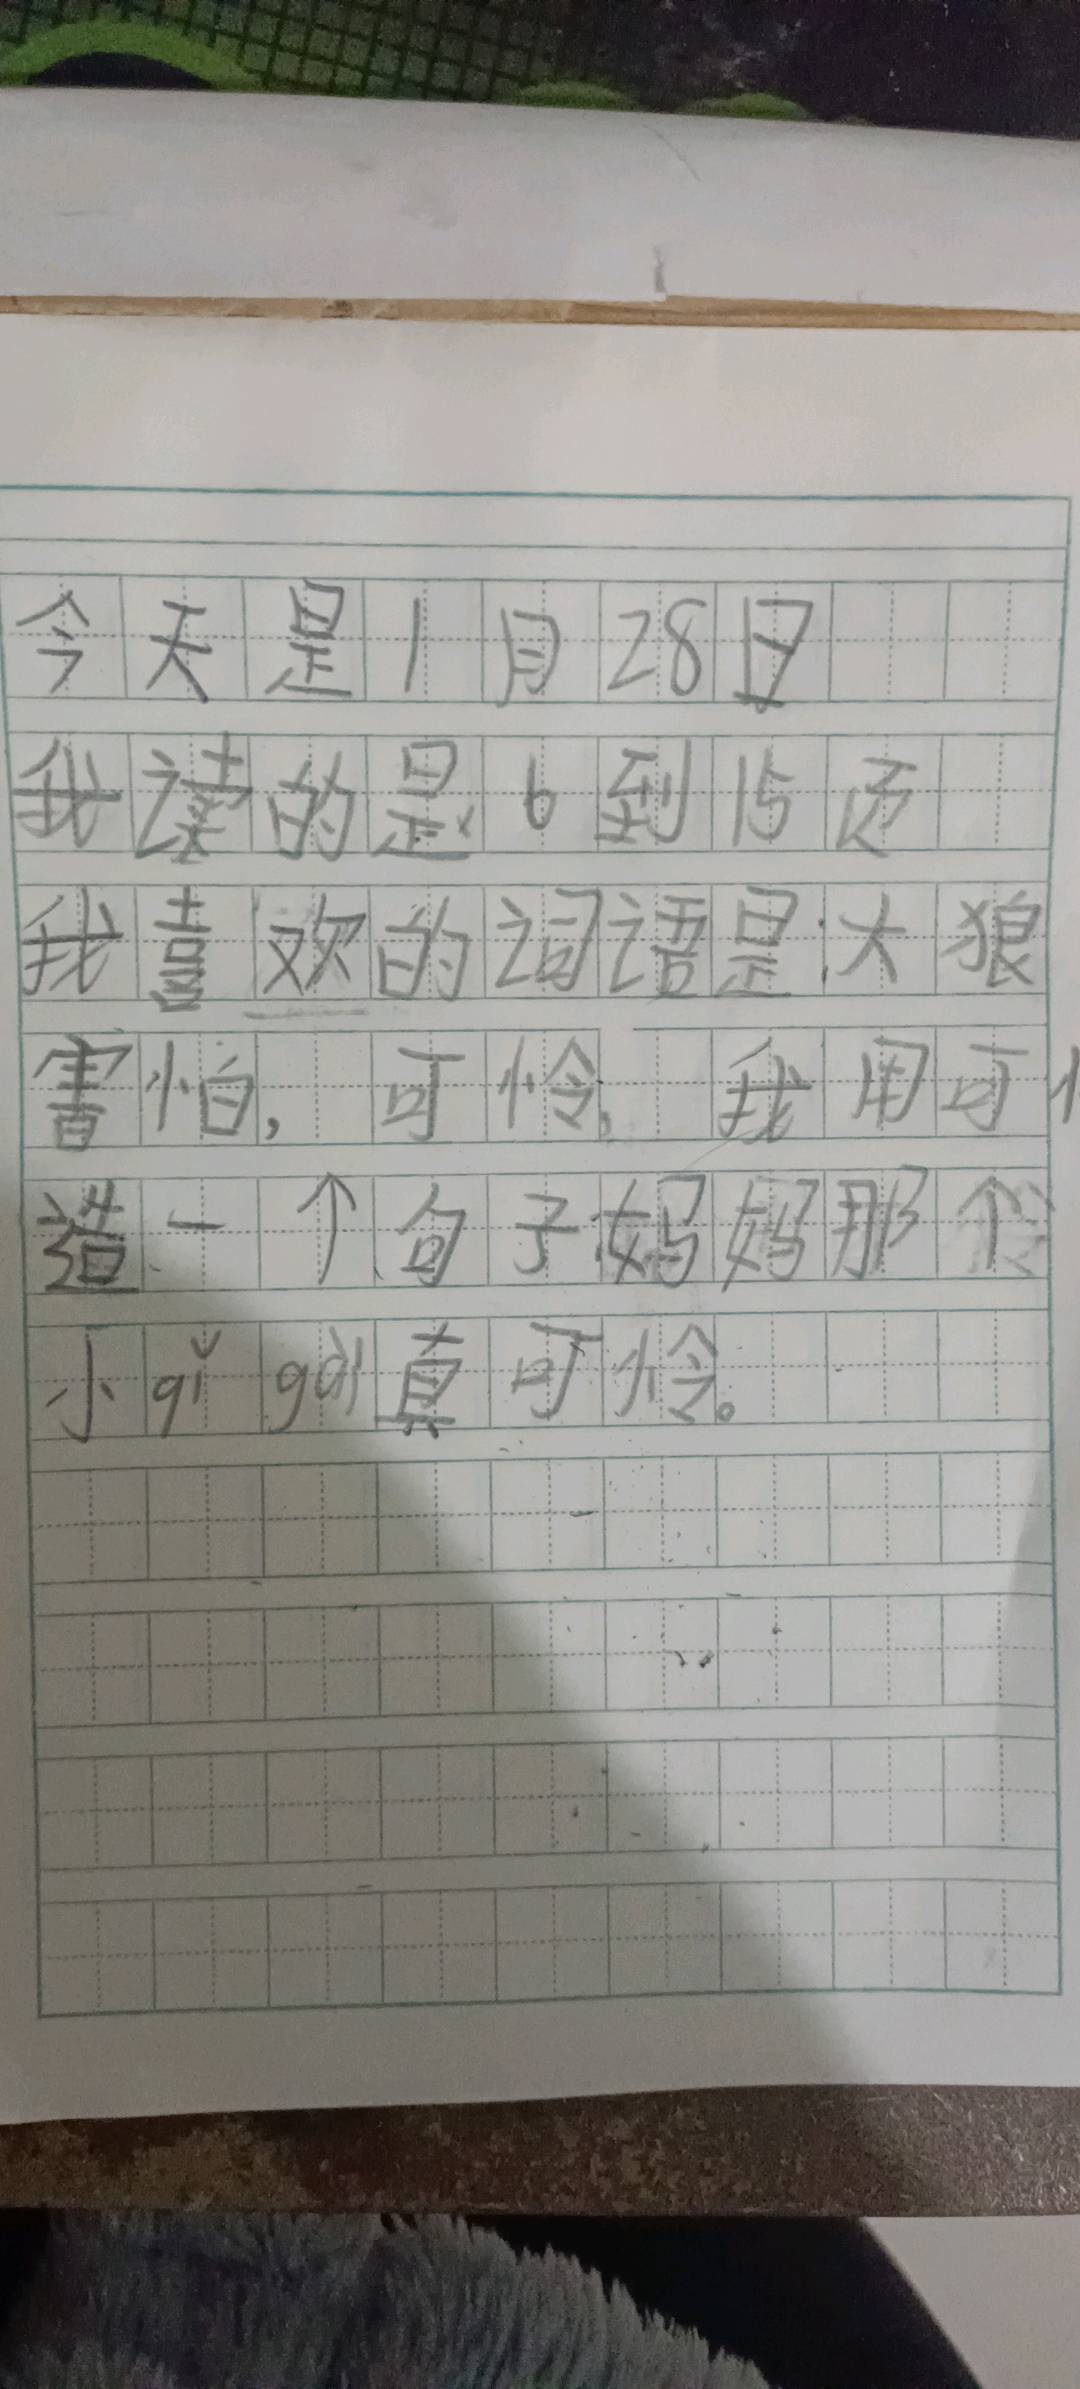 今天是1月28日
我读的是6到15页
我喜欢的词语是:大狼
害怕,可怜。我用可
造一个句子妈妈那个
小qǐ gài真可怜。